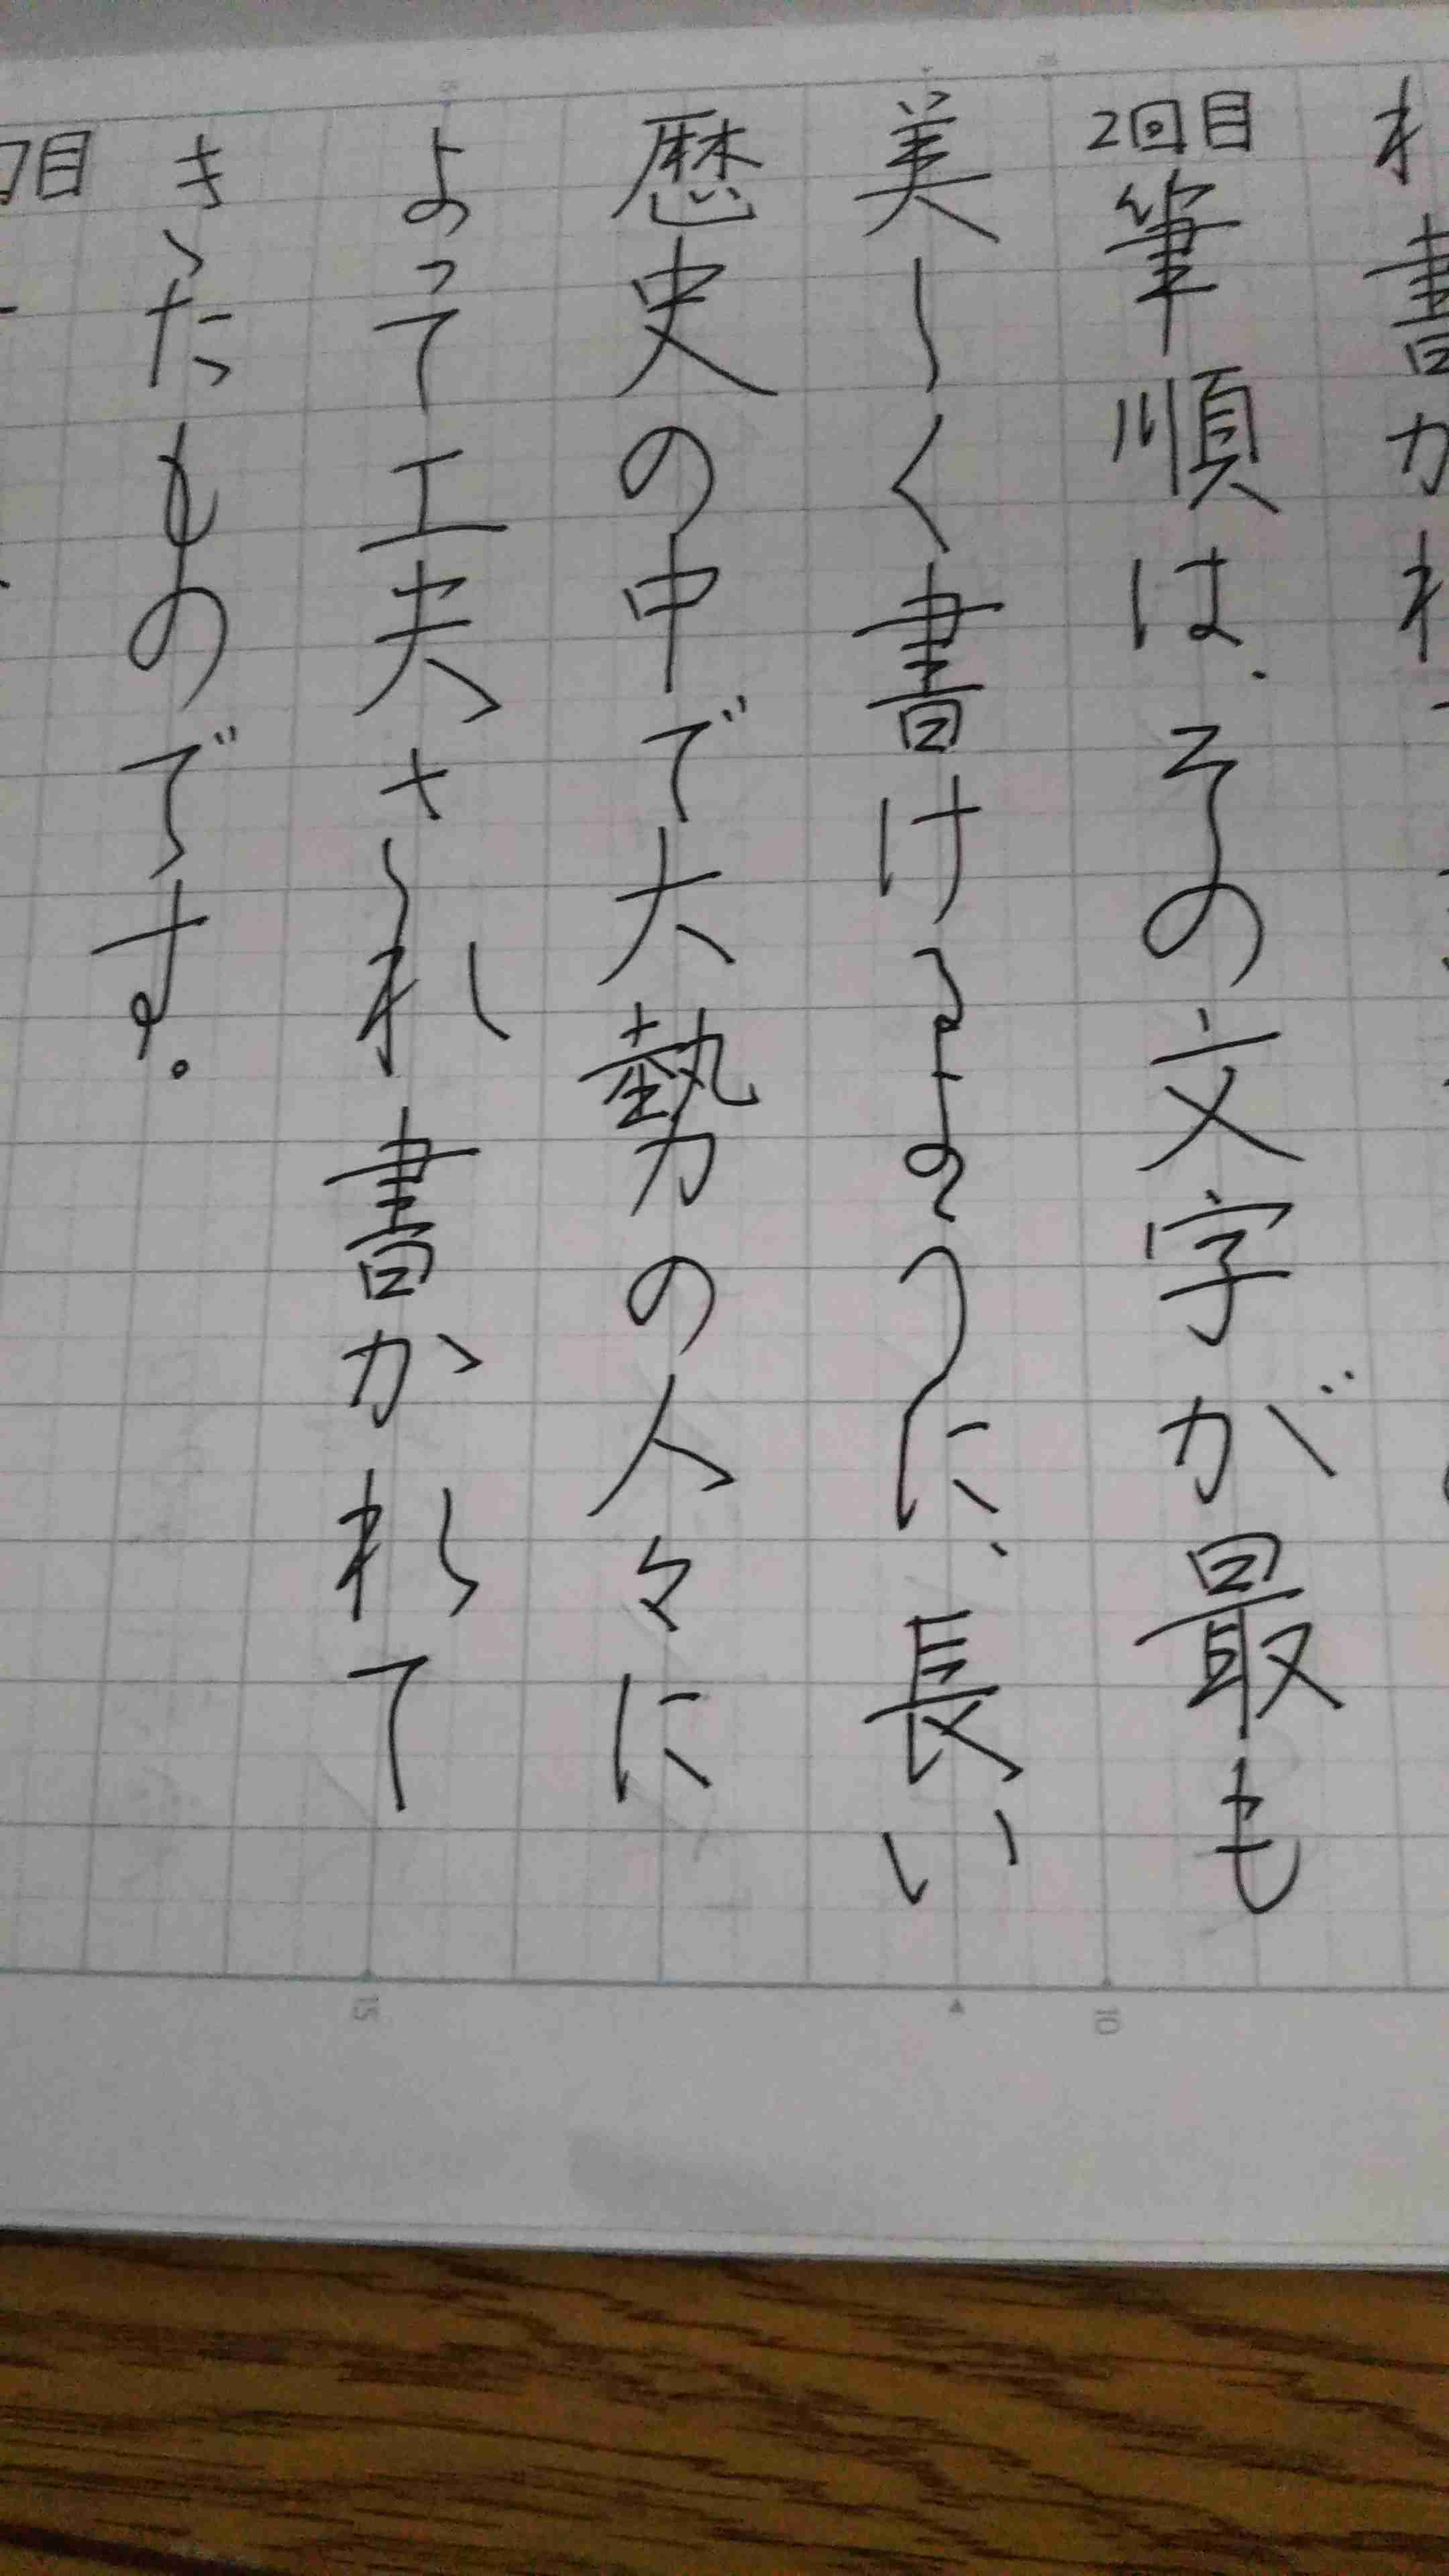 れ書かれ
2回目
筆順は、その文字が最も
美しく書けるように、長い
歴史の中で大勢の人々に
よって工夫され書かれて
きたものです。
目
15
10